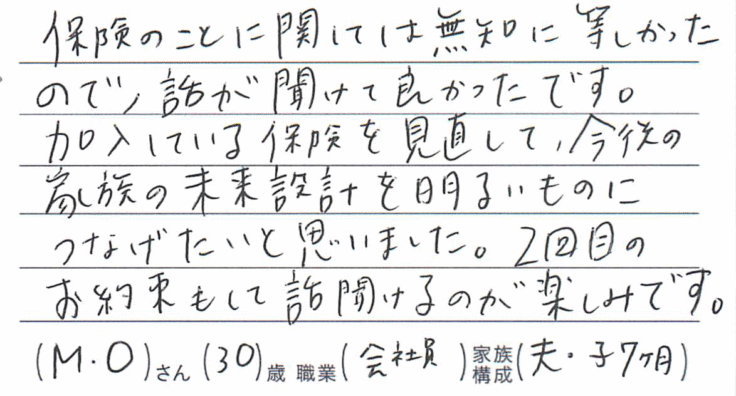 保険のことに関しては無知に等しかった
ので、話が聞けて良かったです。
加入している保険を見直して、今後の
家族の未来設計を明るいものに
つなげたいと思いました。2回目の
お約束もして話聞けるのが楽しみです。
(M・O)さん(30)歳 職業(会社員)家族構成(夫・子7ヶ月)